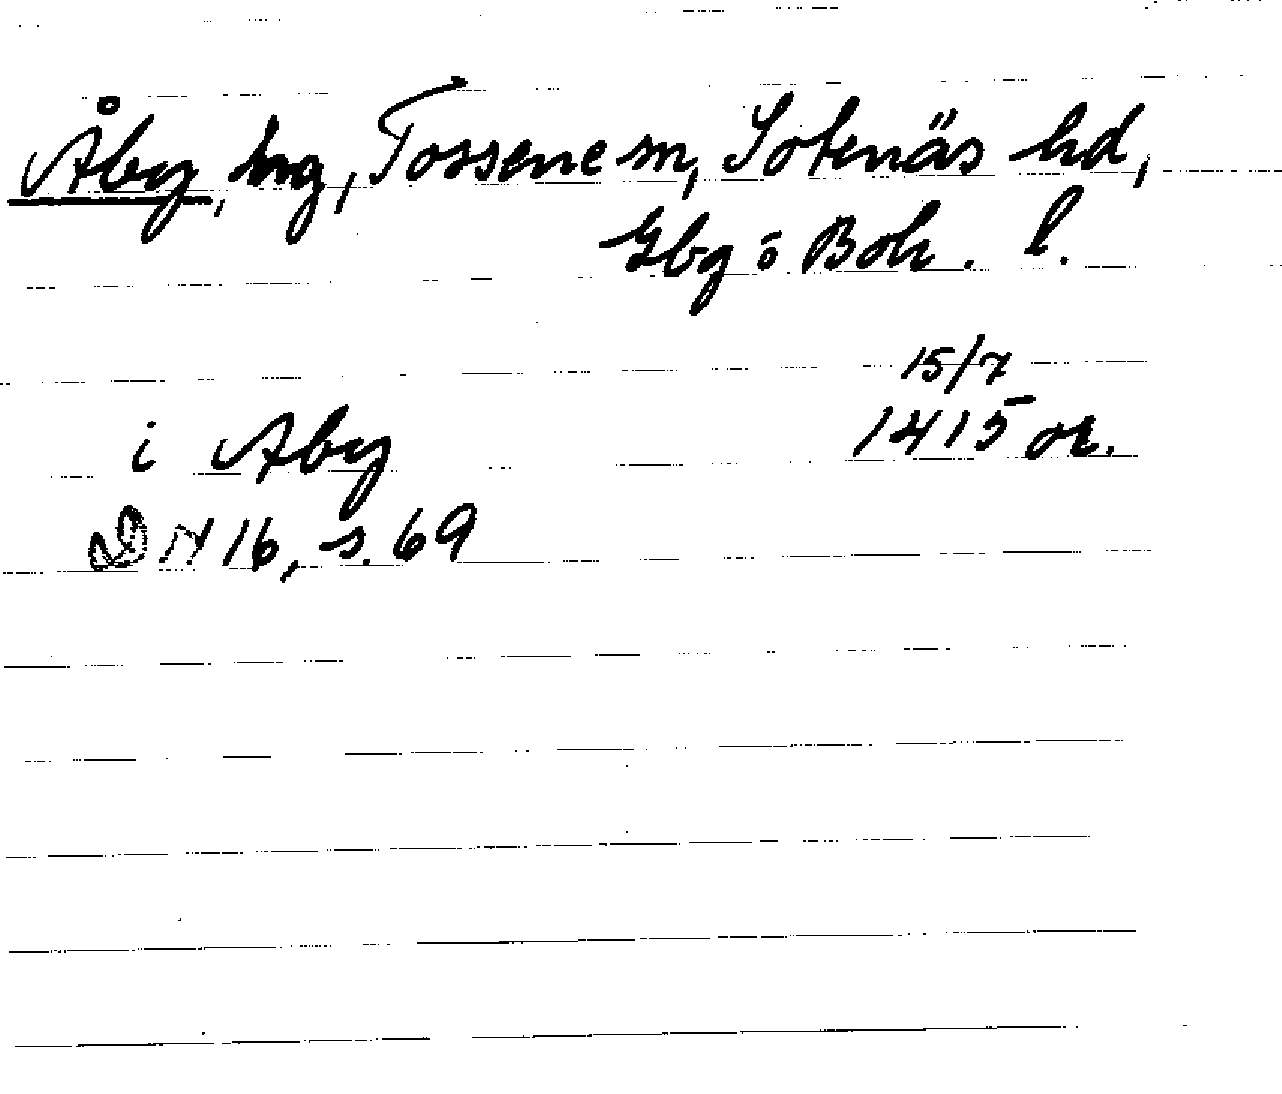 Åby, hrg, Tossene sn, Sotenäs hd,
Gbg o Boh. l.
15/7
i Aby 1415 or.
DN 16, s. 69